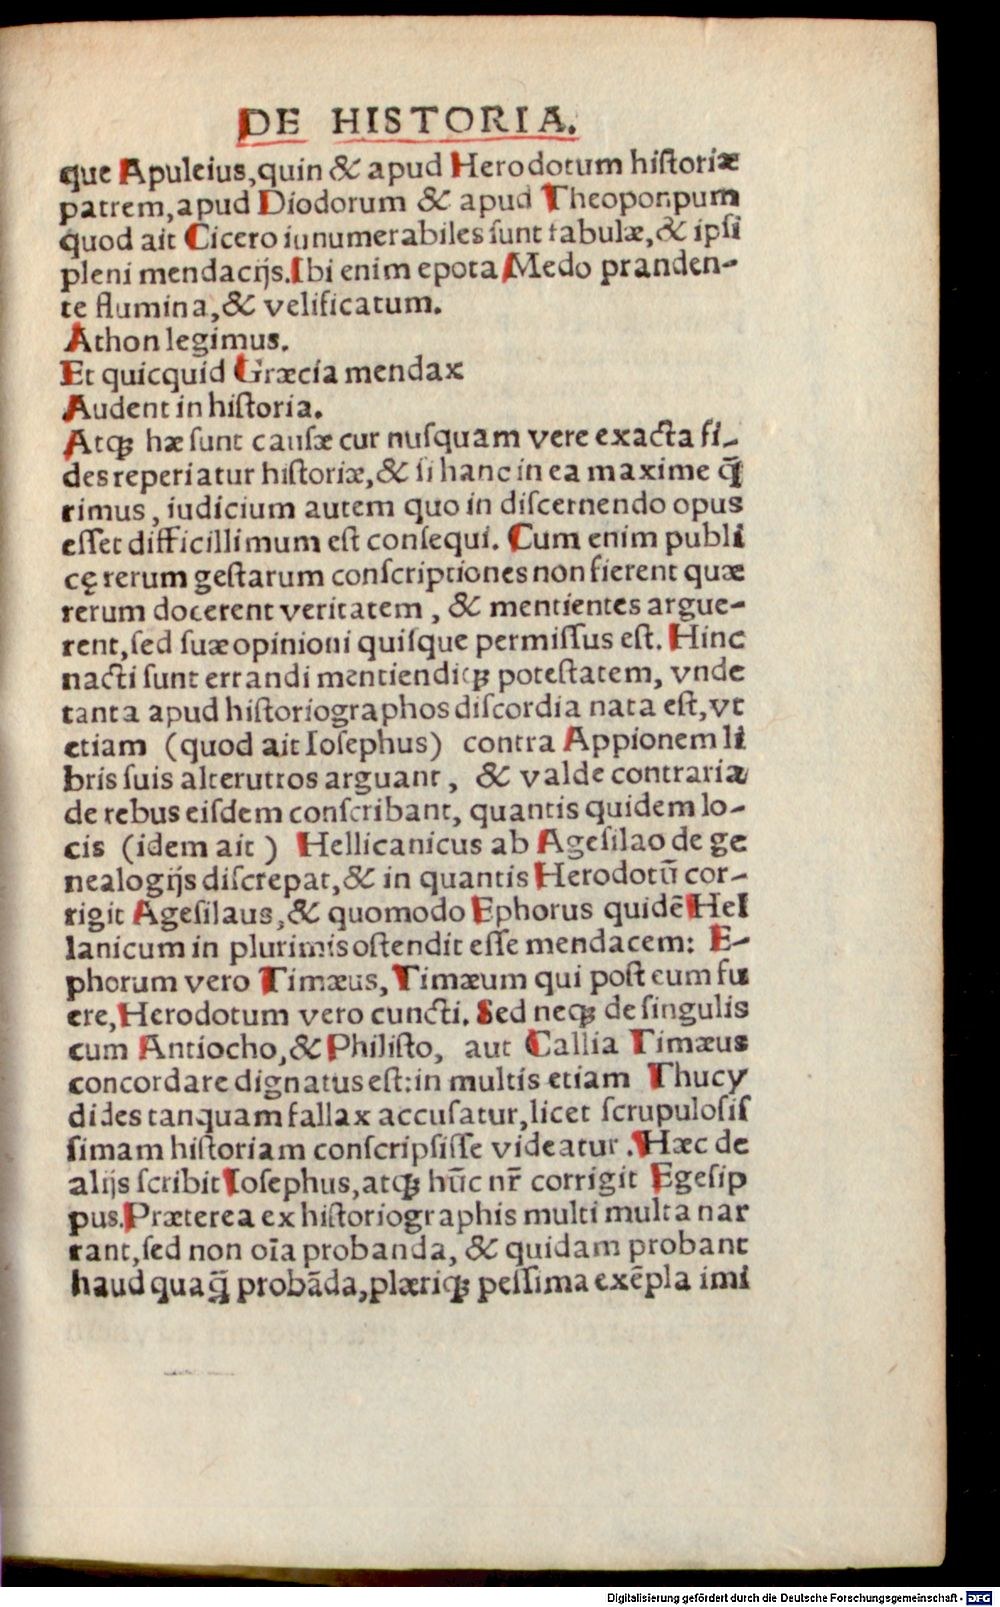 DE HISTORIA.
que Apuleius,quin & apud Herodotum historiæ
patrem,apud Diodorum & apud Theoponpum
quod ait Cicero iunumerabiles sunt fabulæ,& ipsi
pleni mendacijs.Ibi enim epota Medo pranden-
te flumina,& velificatum.
Athon legimus.
Et quicquid Græcia mendax
Audent in historia.
Atqꝫ hæ sunt causæ cur nusquam vere exacta fi-
des reperiatur historiæ,& si hanc in ea maxime q̄
rimus, iudicium autem quo in discernendo opus
esset difficillimum est consequi. Cum enim publi
cę rerum gestarum conscriptiones non fierent quæ
rerum docerent veritatem, & mentientes argue-
rent,sed suæ opinioni quisque permissus est. Hinc
nacti sunt errandi mentiendiqꝫ potestatem, vnde
tanta apud historiographos discordia nata est,vt
etiam (quod ait Iosephus) contra Appionem li
bris suis alterutros arguant, & valde contraria
de rebus eisdem conscribant, quantis quidem lo-
cis (idem ait) Hellicanicus ab Agesilao de ge
nealogijs discrepat,& in quantis Herodotū cor-
rigit Agesilaus,& quomodo Ephorus quidē Hel
lanicum in plurimis ostendit esse mendacem: E-
phorum vero Timæus, Timæum qui post eum fu
ere,Herodotum vero cuncti. Sed neqꝫ de singulis
cum Antiocho,& Philisto, aut Callia Timæus
concordare dignatus est:in multis etiam Thucy
dides tanquam fallax accusatur,licet scrupulosis
simam historiam conscripsisse videatur. Hæc de
alijs scribit Iosephus,atqꝫ hūc nr̄ corrigit Egesip
pus.Præterea ex historiographis multi multa nar
rant,sed non oīa probanda, & quidam probant
haud quaq̄ probāda,plæriqꝫ pessima exēpla imi
Digitalisierung gefördert durch die Deutsche Forschungsgemeinschaft - DFG